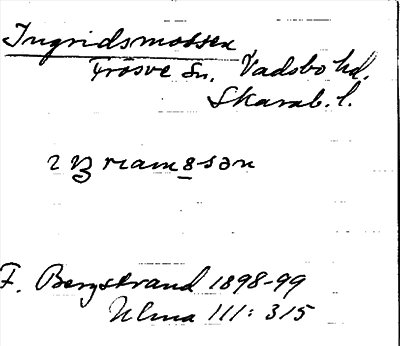 Ingridsmossen
Trösve Sn. Vadsbo hd.
Skarab. l.
F. Bergstrand 1898-99
Ulma 111: 315